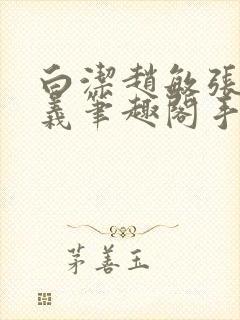 白潔趙敏張
義筆趣閣手
茅善玉